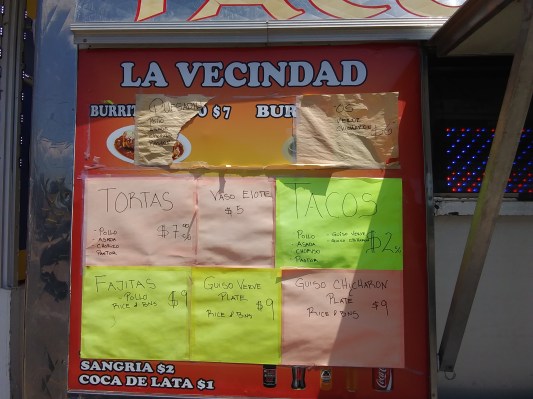 TACO
LA VECINDAD
BURRIT
$7
BUR
VERVE
CHICHARON
TORTAS
- POLLO
- ASADA
CHORIZO
PASTOR
$7
VASO ELOTE
$5
TACOS
POLLO
ASADA
CHORIZO
PASTOR
- GUISO VERVE
- GUISO CHICHARON
$2
FAJITAS
- POLLO
RICE & BNS
$9
GUISO VERVE
PLATE
RICE & BNS
$9
GUISO CHICHARON
PLATE
RICE & BNS
$9
SANGRIA $2
COCA DE LATA $1